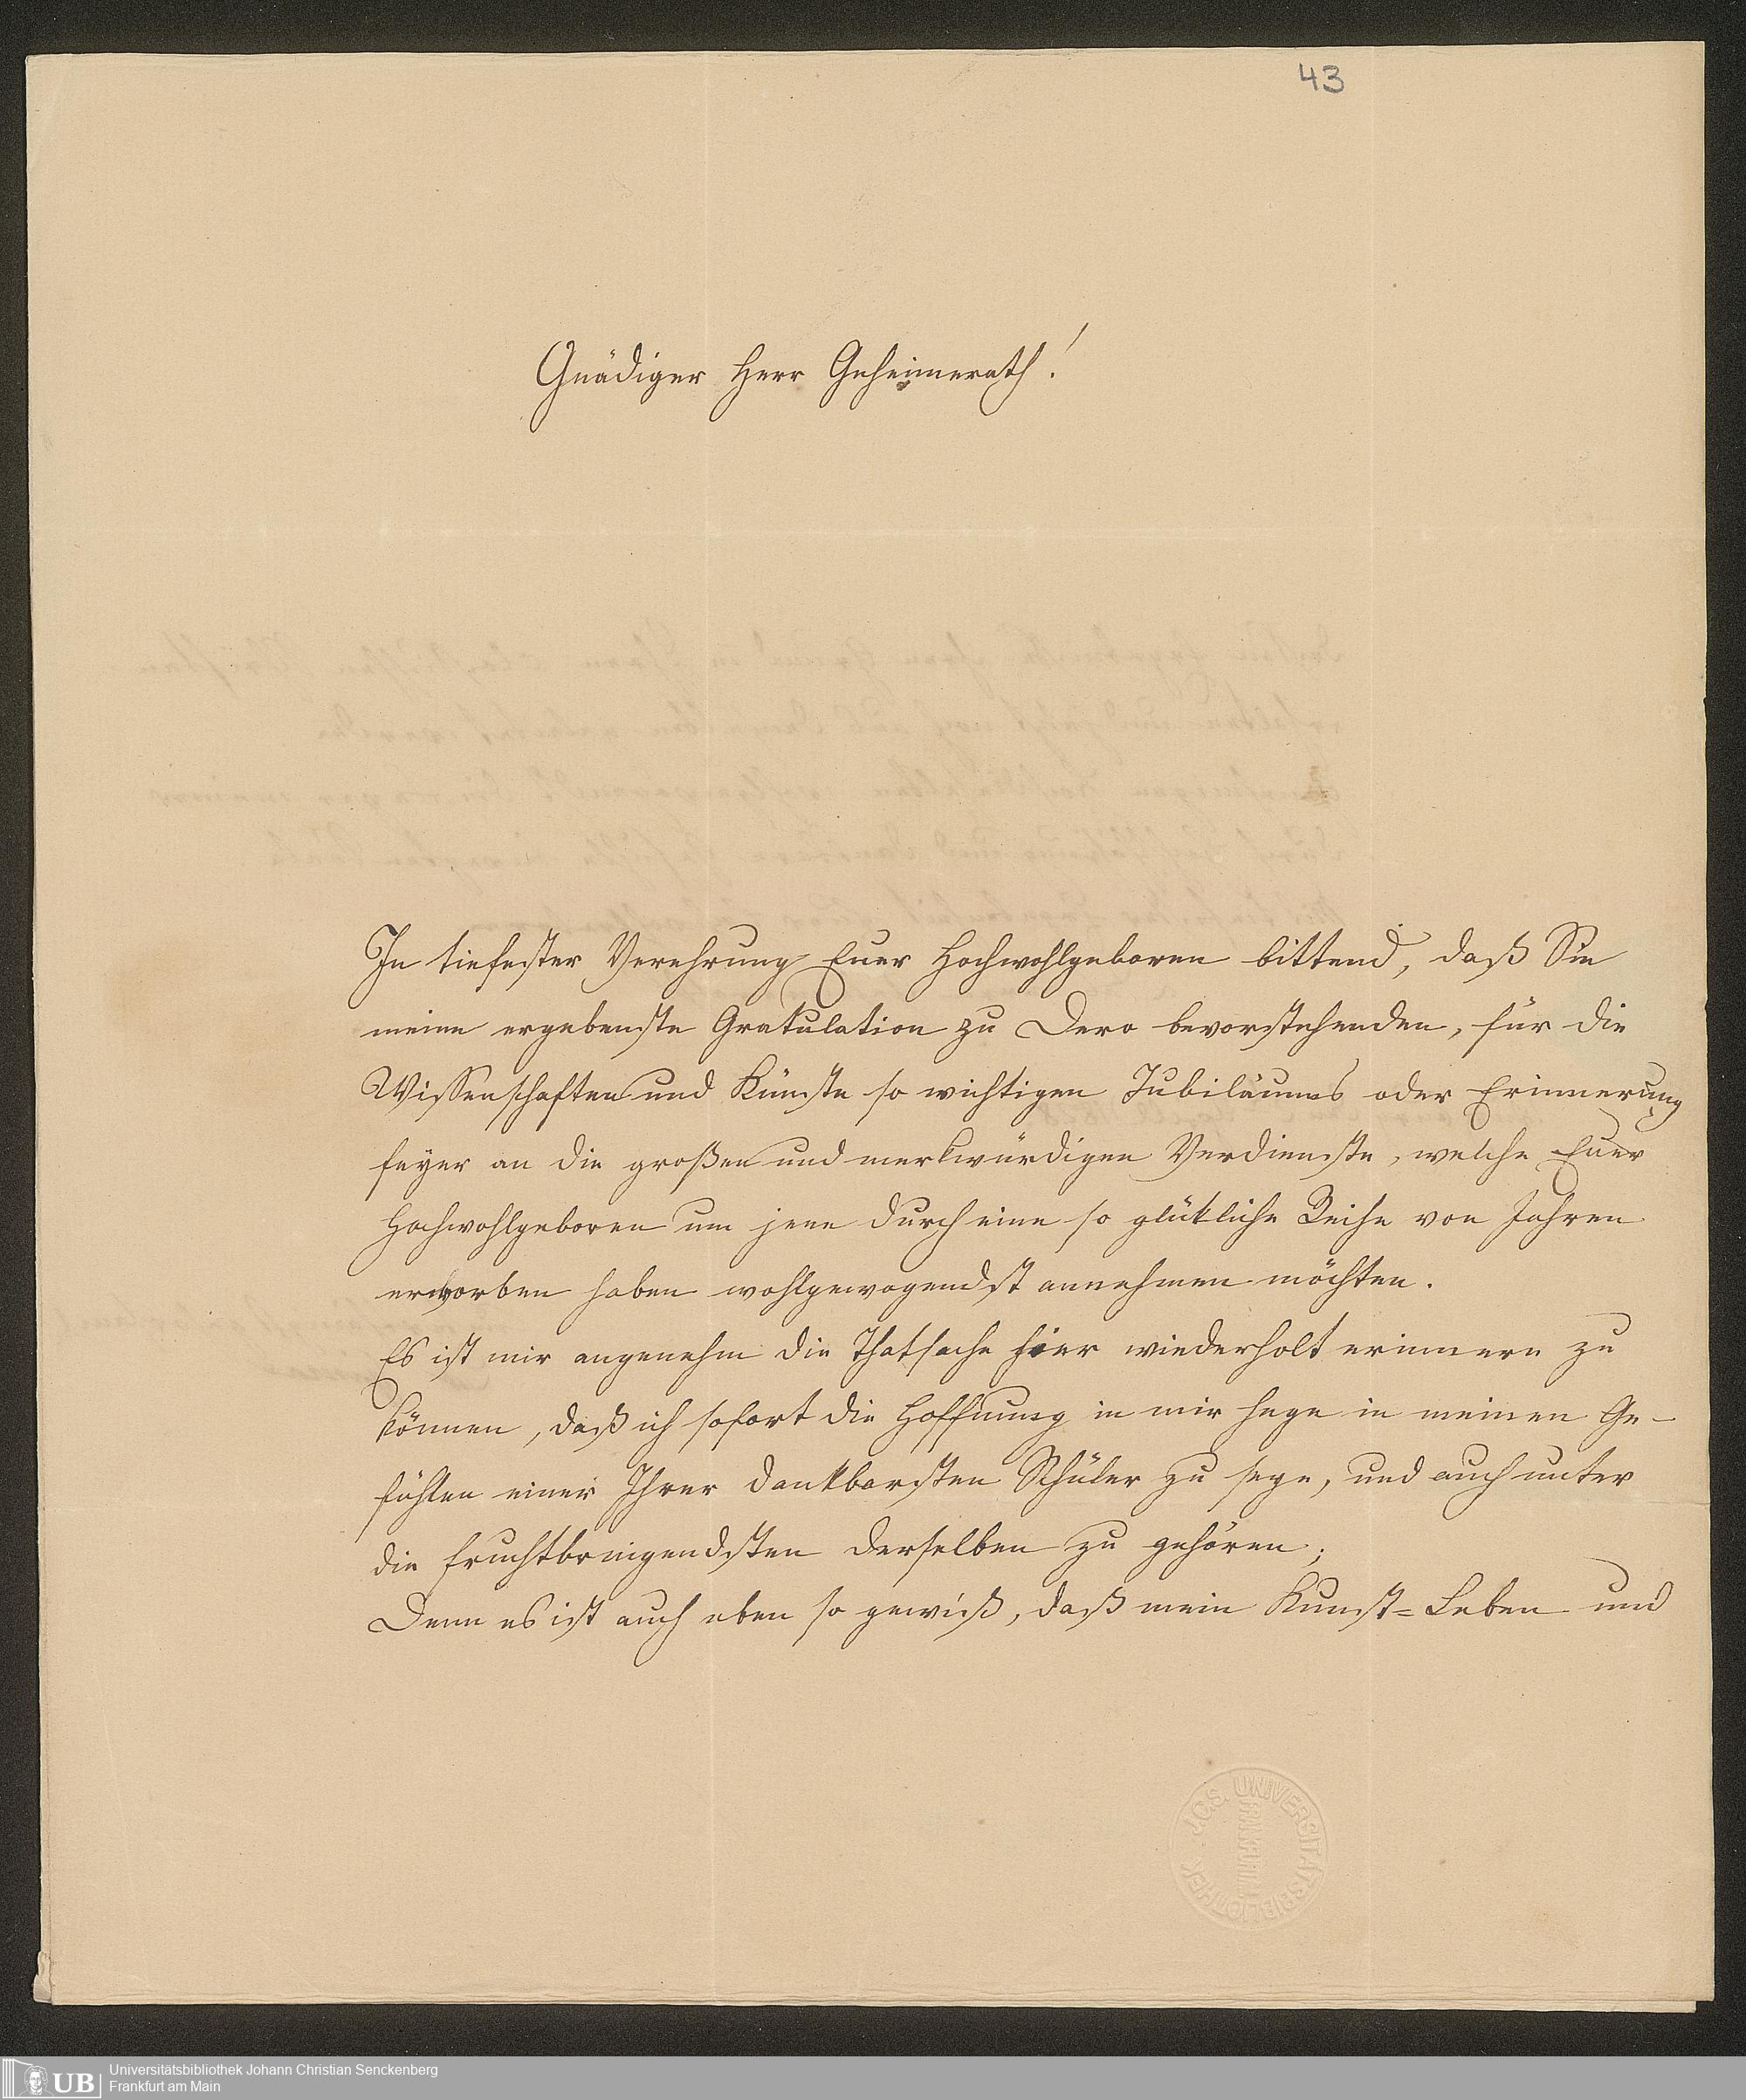 43
Gnädiger Herr Geheimerath!
In tiefester Verehrung Euer Hochwohlgeboren bittend, daß Sie
meine ergebenste Gratulation zu Dero bevorstehenden, für die
Wissenschaften und Künste so wichtigen Jubiläums oder Erinnerung
feyer an die großen und merkwürdigen Verdienste, welche Euer
Hochwohlgeboren um jene durch eine so glükliche Reihe von Jahren
erworben haben wohlgewogendst annehmen möchten.
Es ist mir angenehm die Thatsache hier wiederholt erinnern zu
können, daß ich sofort die Hoffnung in mir hege in meinen Ge-
fühlen einer Ihrer dankbarsten Schüler zu seye, und auch unter
die fruchtbringendsten derselben zu gehören;
Denn es ist auch eben so gewiß, daß mein Kunst=Leben und
J.C.S. UNIVERSITÄTSBIBLIOTHEK
UB
Universitätsbibliothek Johann Christian Senckenberg
Frankfurt am Main